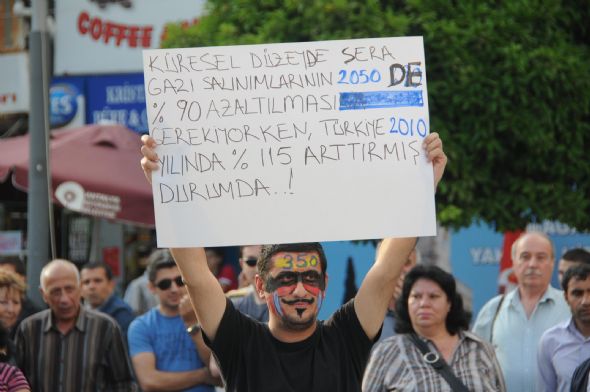 COFFEE
KÜRESEL DÜZEYDE SERA
GAZI SALINIMLARININ 2050 DE
% 90 AZALTILMASI
GEREKİYORKEN, TÜRKİYE 2010
YILINDA % 115 ARTTIRMIŞ
DURUMDA..!
350